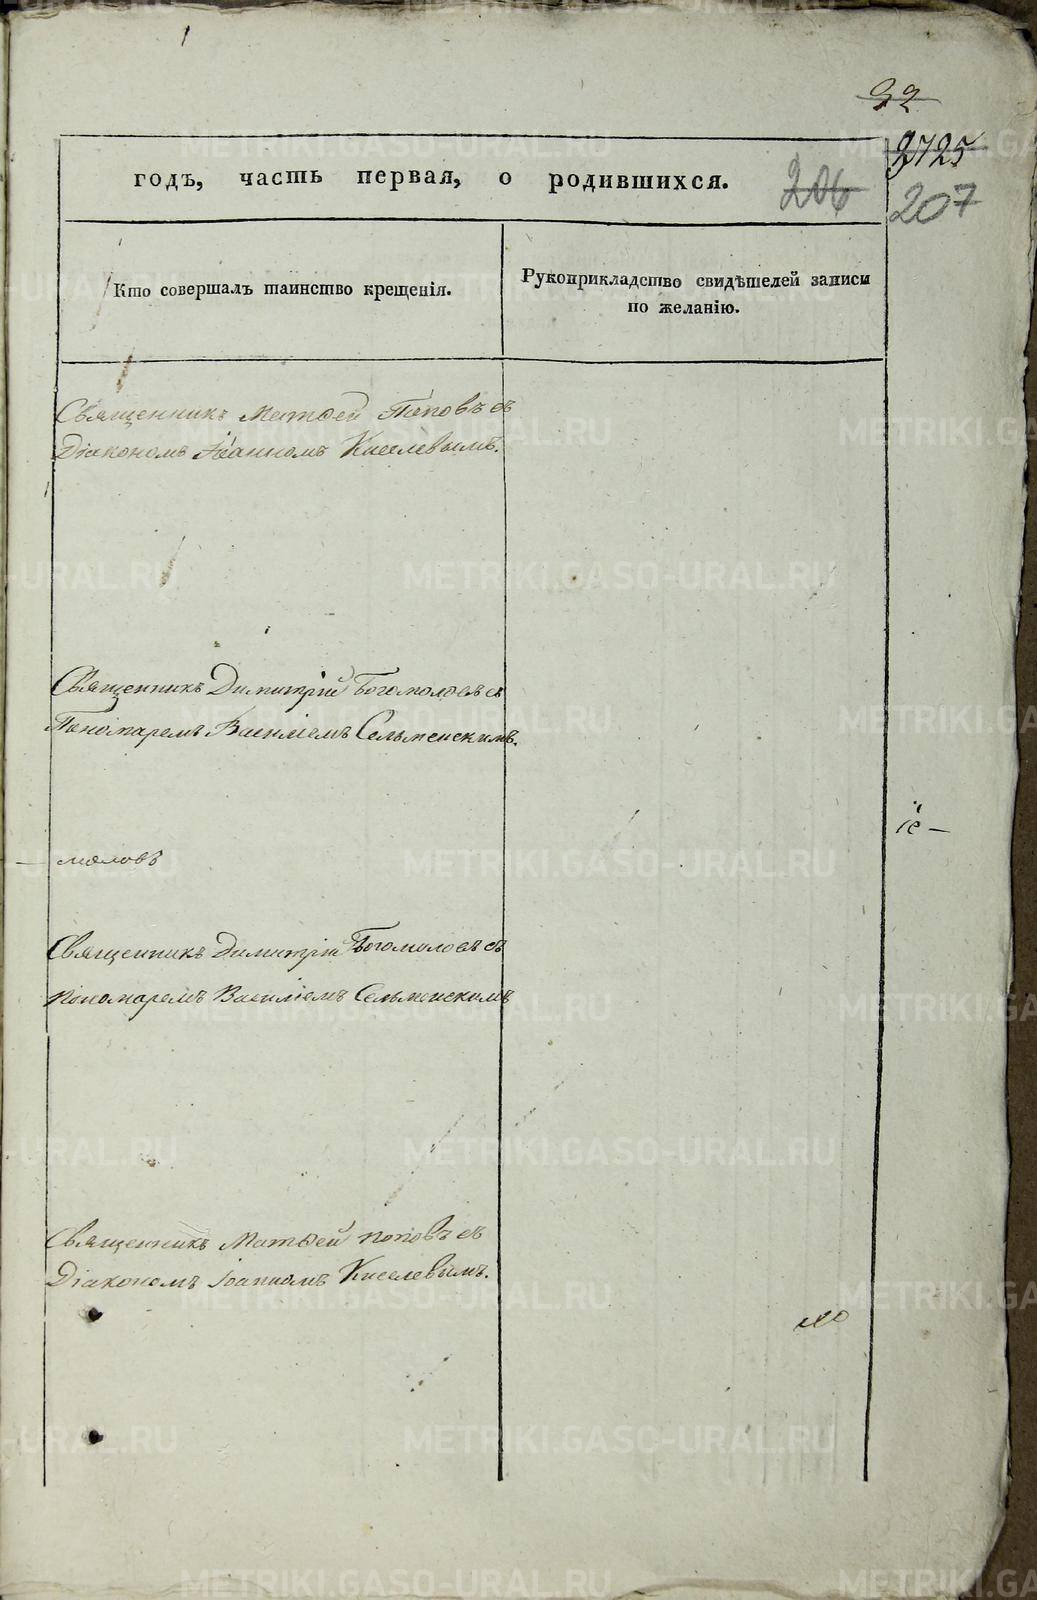 32
2725
годъ, часть первая, о родившихся.
206
207
Кто совершалъ таинство крещенія.
Рукоприкладство свидѣтелей записи
по желанію.
Священникъ Матѳей Поповъ съ
Діакономъ Іоанномъ Киселевымъ.
Священникъ Димитрій Богомоловъ съ
Пономаремъ Василіемъ Сельменскимъ.
іе —
— моловъ
Священникъ Димитрій Богомоловъ съ
пономаремъ Василіемъ Сельменскимъ
Священникъ Матѳей поповъ съ
Діакономъ іоанномъ Киселевымъ.
METRIKI.GASO-URAL.RU